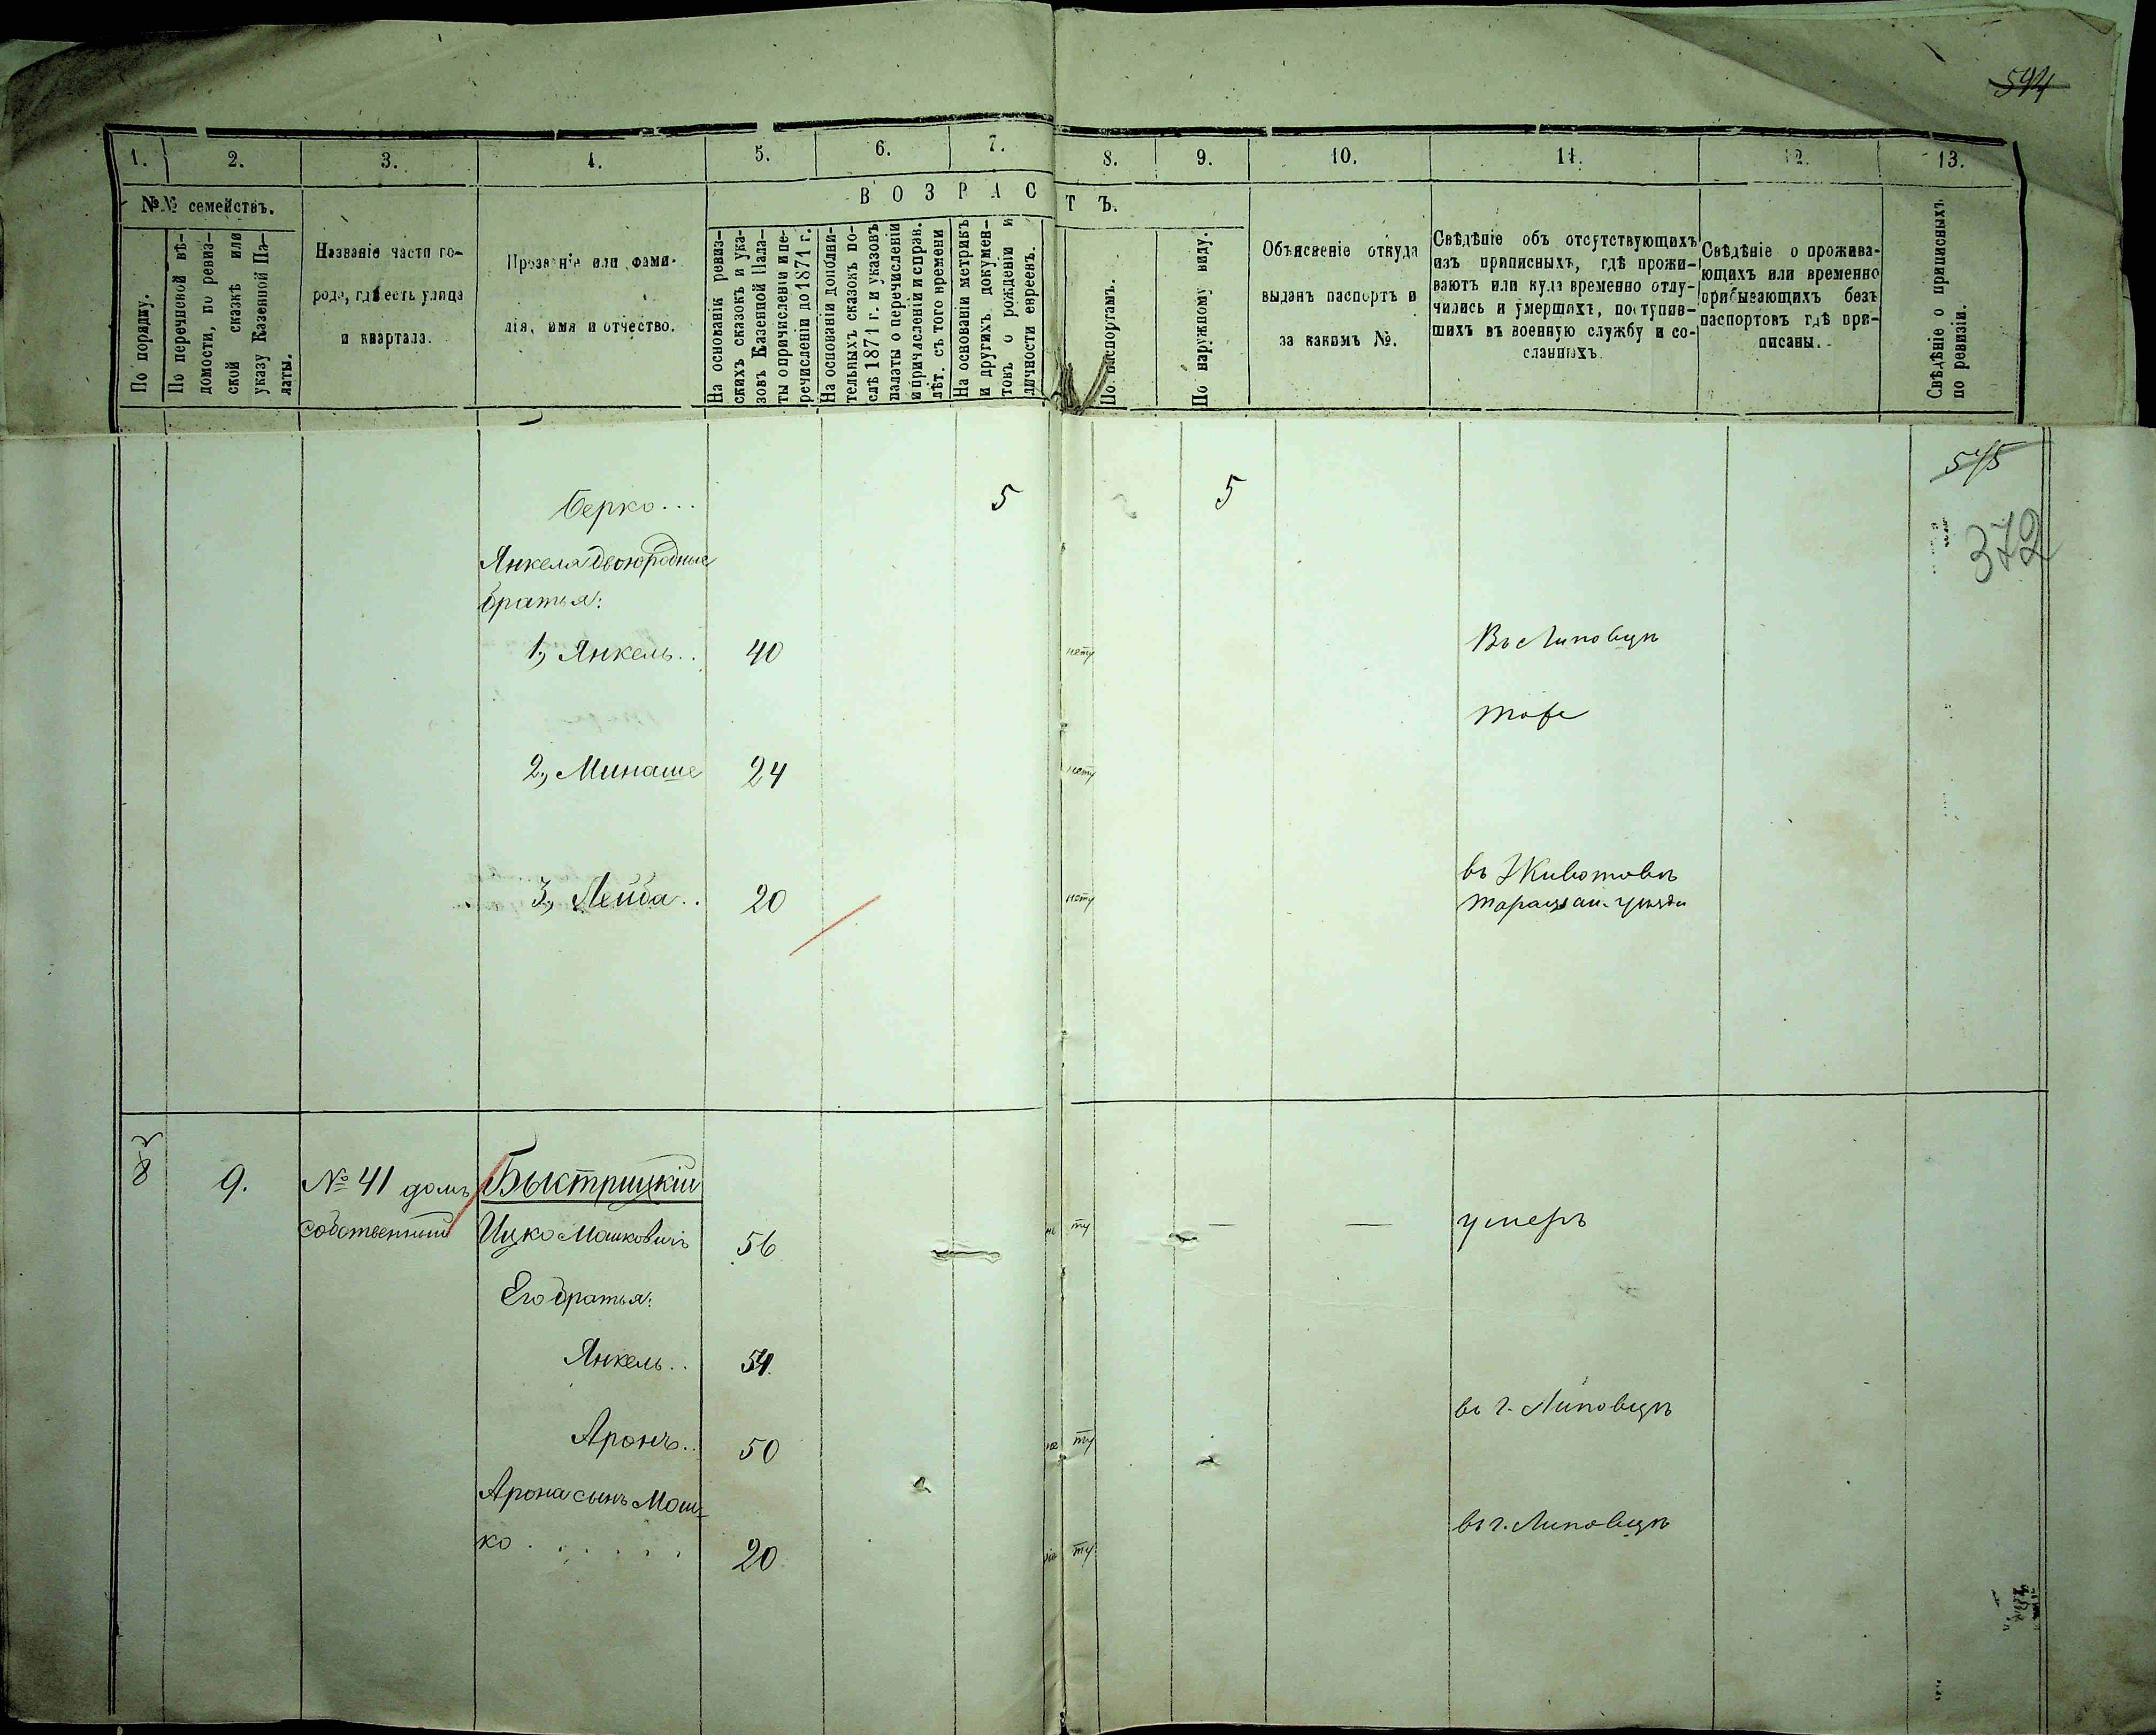 594
1. 2. 3. 4. 5. 6. 7. 8. 9. 10. 11. 12. 13.
№№ семействъ.
По порядку.
По перечневой вѣ-
домости, по ревиз-
ской сказкѣ или
указу Казенной Па-
латы.
Названіе части го-
рода, гдѣ есть улица
и квартала.
Прозваніе или фами-
лія, имя и отчество.
ВОЗРАСТЪ.
На основаніи ревиз-
скихъ сказокъ и ука-
зовъ Казенной Пала-
ты о причисленіи и пе-
речисленіи до 1871 г.
На основаніи дополни-
тельныхъ сказокъ по-
слѣ 1871 г. и указовъ
палаты о перечисленіи
и причисленіи и справ.
лѣт. съ того времени
На основаніи метрикъ
и другихъ докумен-
товъ о рожденіи и
личности евреевъ.
По паспортамъ.
По наружному виду.
Объясненіе откуда
выданъ паспортъ и
за какимъ №.
Свѣдѣніе объ отсутствующихъ
изъ приписныхъ, гдѣ прожи-
ваютъ или куда временно отлу-
чились и умершихъ, поступив-
шихъ въ военную службу и со-
сланныхъ.
Свѣдѣніе о прожива-
ющихъ или временно
прибывающихъ безъ
паспортовъ гдѣ при-
писаны.
Свѣдѣніе о приписныхъ
по ревизіи.
372
Берко... 5 5
Янкеля двоюродные
братья:
1, Янкель.. 40 нету Въ Липовцѣ
тоже
2, Минаше 24 нету
3, Лейба.. 20 нету въ Животовѣ
Таращан. уѣзда
9. № 41 домъ Быстрицкій
собственный Ицко Мошковичъ 56 нету — — умеръ
Его братья:
Янкель.. 54
въ г. Липовцѣ
Аронъ.. 50 нету
Арона сынъ Мош-
ко 20 нету въ г. Липовцѣ